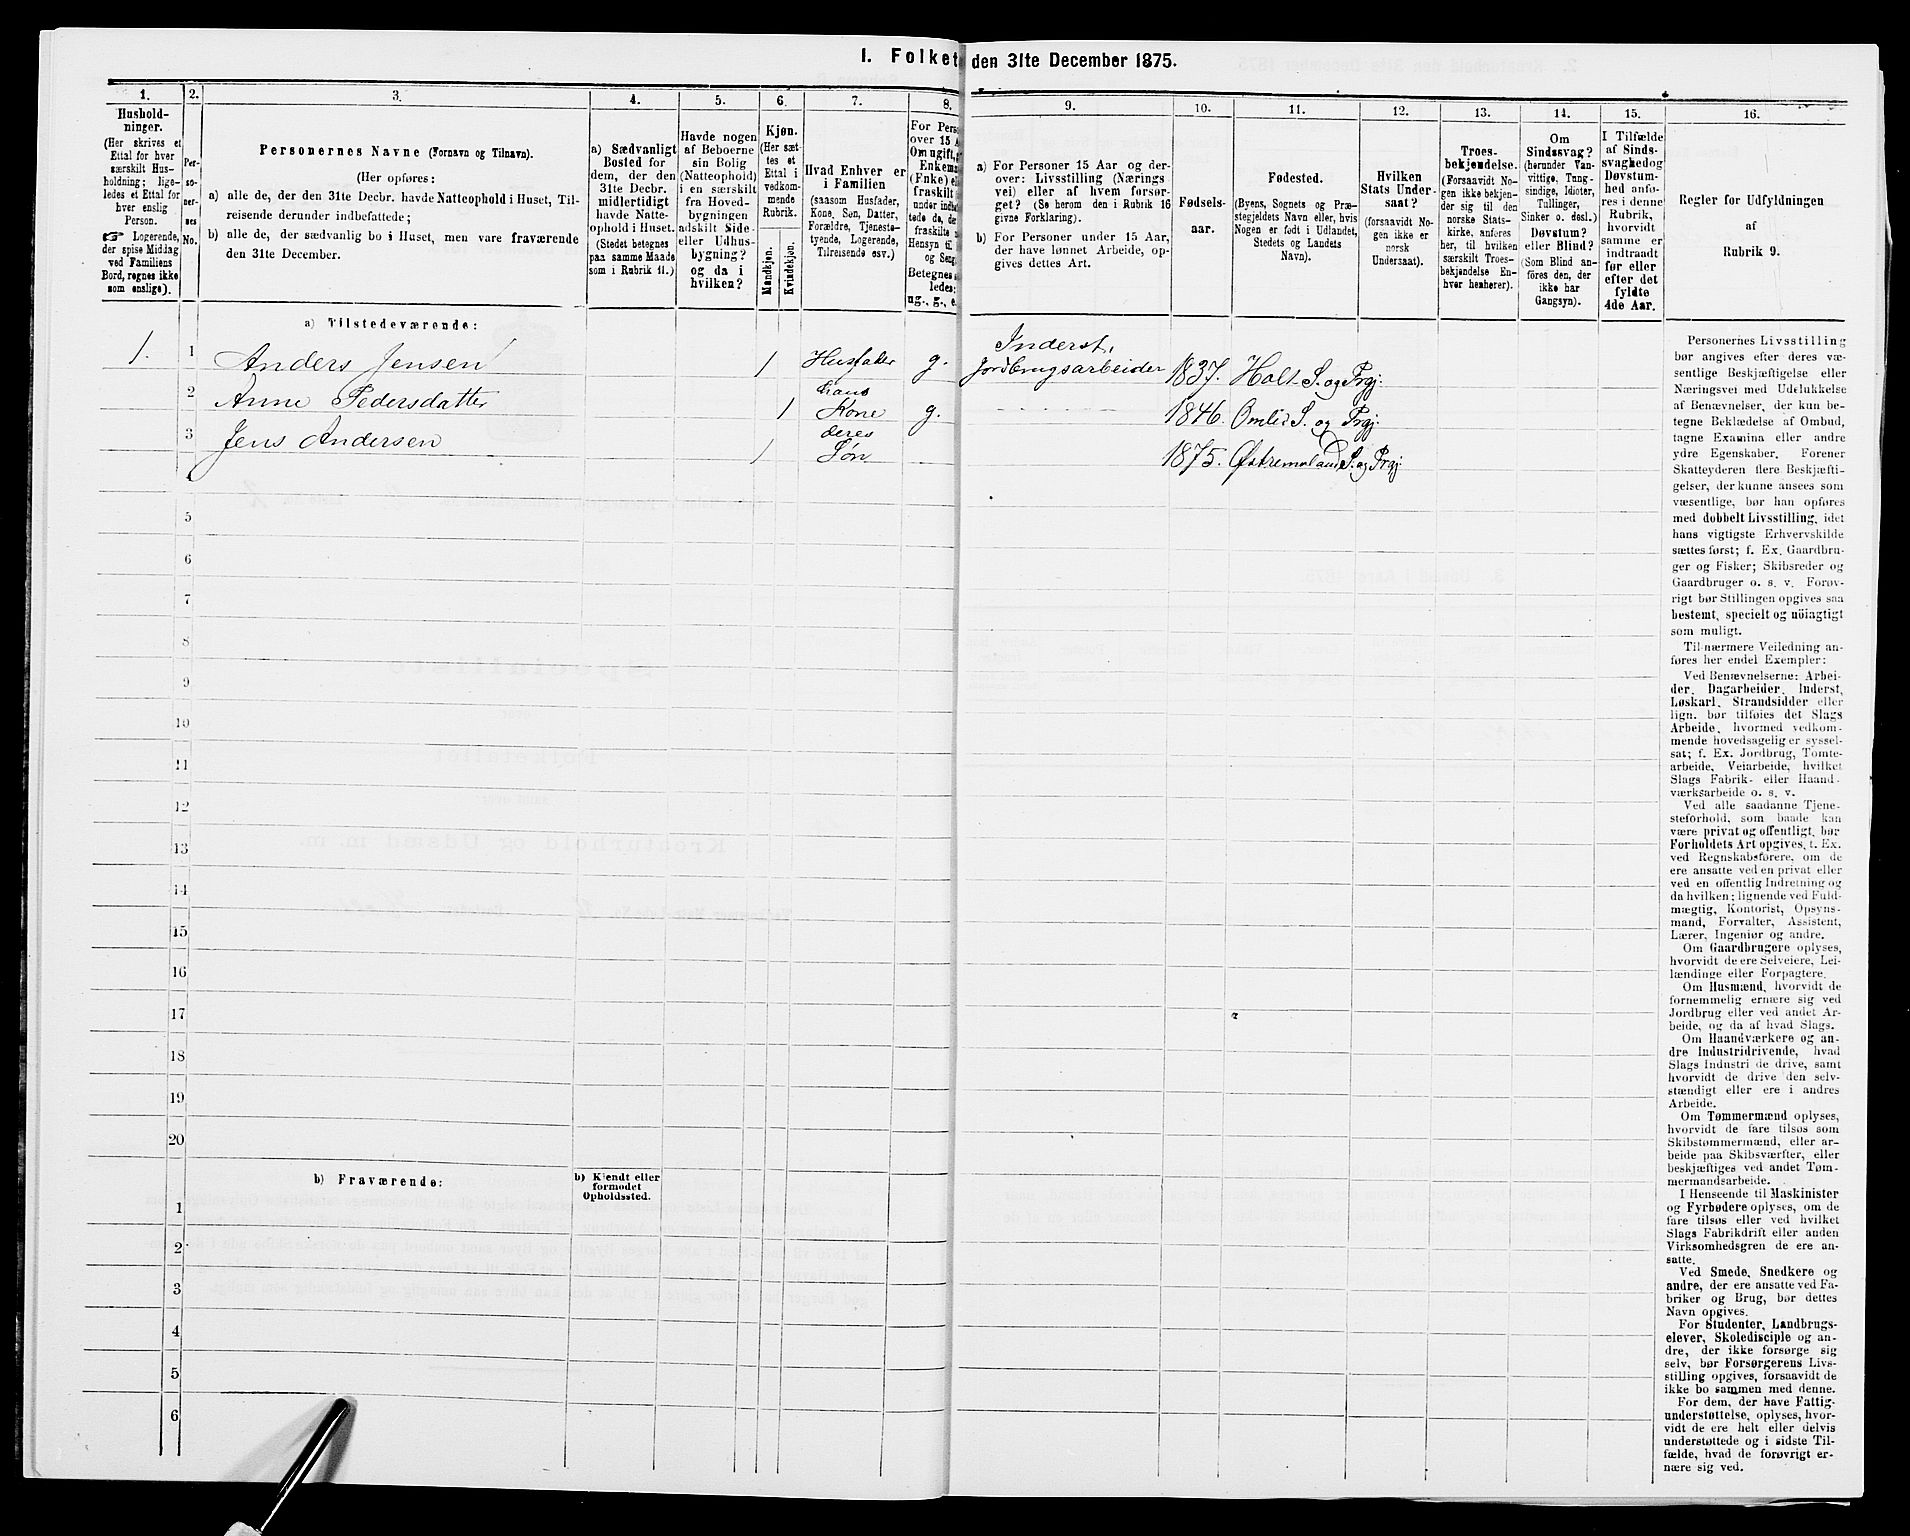 1. Folket den 31te December 1875.
1.
Hushold-
ninger.
(Her skrives et
Ettal for hver
særskilt Hus-
holdning; lige-
ledes et Ettal for
hver enslig
Person.
Logerende,
der spise Middag
ved Familiens
Bord, regnes ikke
som enslige).
2.
Per-
so-
ner-
nes
No.
3.
Personernes Navne (Fornavn og Tilnavn).
(Her opføres:
a) alle de, der den 31te Decbr. havde Natteophold i Huset, Til-
reisende derunder indbefattede;
b) alle de, der sædvanlig bo i Huset, men vare fraværende
den 31te December.
4.
a) Sædvanligt
Bosted for
dem, der den
31te Decbr.
midlertidigt
havde Natte-
ophold i Huset.
(Stedet betegnes
paa samme Maade
som i Rubrik 11.)
5.
Havde nogen
af Beboerne
sin Bolig
(Natteophold)
i en særskilt
fra Hoved-
bygningen
adskilt Side-
eller Udhus-
bygning?
og da i
hvilken?
6.
Kjøn.
(Her sæt-
tes et
Ettal i
vedkom-
mende
Rubrik.
Mandkjøn.
Kvindekjøn.
7.
Hvad Enhver er
i Familien
(saasom Husfader,
Kone, Søn, Datter,
Forældre, Tjeneste-
tyende, Logerende,
Tilreisende osv.)
8.
For Pers
over 15 A
Om ugift, g
Enkem
(Enke) el
fraskilt
under indbe
tede de, de
fraskilte
Hensyn til
og Seng
Betegnes s
ledes:
ug., g., e.
9.
a) For Personer 15 Aar og der-
over: Livsstilling (Nærings
vei) eller af hvem forsør-
get? (Se herom den i Rubrik 16
givne Forklaring).
b) For Personer under 15 Aar,
der have lønnet Arbeide, op-
gives dettes Art.
10.
Fødsels-
aar.
11.
Fødested.
(Byens, Sognets og Præ-
stegjeldets Navn eller, hvis
Nogen er født i Udlandet,
Stedets og Landets
Navn).
12.
Hvilken
Stats Under-
saat?
(forsaavidt No-
gen ikke er
norsk
Undersaat).
13.
Troes-
bekjendelse.
(Forsaavidt No-
gen ikke bekjen-
der sig til den
norske Stats-
kirke, anføres
her, til hvilken
særskilt Troes-
bekjendelse En-
hver henhører).
14.
Om
Sindssvag?
(herunder Van-
vittige, Tung-
sindige, Idioter,
Tullinger,
Sinker o. desl.)
Døvstum?
eller Blind?
(Som Blind an-
føres den, der
ikke har
Gangsyn).
15.
I Tilfælde
af Sinds-
svaghed og
Døvstum-
hed anfø-
res i denne
Rubrik,
hvorvidt
samme er
indtraadt
før eller
efter det
fyldte
4de Aar.
16.
Regler for Udfyldningen
af
Rubrik 9.
a) Tilstedeværende:
1. 1 Anders Jensen 1 Husfader g. Inderst, Jordbrugsarbeider 1837. Holt S. og Prgj.
2 Anne Pedersdatter 1 hans Kone g. 1846. Omlid S. og Prgj.
3 Jens Andersen 1 deres Søn 1875. Østremoland S. og Prgj.
4
5
6
7
8
9
10
11
12
13
14
15
16
17
18
19
20
b) Fraværende:
b) Kjendt eller
formodet
Opholdssted.
1
2
3
4
5
6
Personernes Livsstilling
bør angives efter deres væ-
sentlige Beskjæftigelse eller
Næringsvei med Udelukkelse
af Benævnelser, der kun be-
tegne Beklædelse af Ombud,
tagne Examina eller andre
ydre Egenskaber. Forener
Skatteyderen flere Beskjæfti-
gelser, der kunne ansees som
væsentlige, bør han opføres
med dobbelt Livsstilling, idet
hans vigtigste Erhvervskilde
sættes først; f. Ex. Gaardbru-
ger og Fisker; Skibsreder og
Gaardbruger o. s. v. Forøv-
rigt bør Stillingen opgives saa
bestemt, specielt og nöiagtigt
som muligt.
Til nærmere Veiledning an-
føres her endel Exempler:
Ved Benævnelserne: Arbei-
der, Dagarbeider, Inderst,
Løskarl, Strandsidder eller
lign. bør tilføies det Slags
Arbeide, hvormed vedkom-
mende hovedsagelig er syssel-
sat; f. Ex. Jordbrug, Tomte-
arbeide, Veiarbeide, hvilket
Slags Fabrik- eller Haand-
værksarbeide o. s. v.
Ved alle saadanne Tjene-
steforhold, som baade kan
være privat og offentligt, bør
Forholdets Art opgives, f. Ex.
ved Regnskabsførere, om de
ere ansatte ved en privat eller
ved en offentlig Indretning og
da hvilken; lignende ved Fuld-
mægtig, Kontorist, Opsyns-
mand, Forvalter, Assistent,
Lærer, Ingeniør og andre.
Om Gaardbrugere oplyses,
hvorvidt de ere Selveiere, Lei-
lændinge eller Forpagtere.
Om Husmænd, hvorvidt de
fornemmelig ernære sig ved
Jordbrug eller ved andet Ar-
beide, og da af hvad Slags.
Om Haandværkere og an-
dre Industridrivende, hvad
Slags Industri de drive, samt
hvorvidt de drive den selv-
stændigt eller ere i andres
Arbeide.
Om Tømmermænd oplyses,
hvorvidt de fare tilsøs som
Skibstømmermænd, eller ar-
beide paa Skibsværfter, eller
beskjæftiges ved andet Tøm-
mermandsarbeide.
I Henseende til Maskinister
og Fyrbødere oplyses, om de
fare tilsøs eller ved hvilket
Slags Fabrikdrift eller anden
Virksomhedsgren de ere an-
satte.
Ved Smede, Snedkere og
andre, der ere ansatte ved Fa-
briker og Brug, bør dettes
Navn opgives.
For Studenter, Landbrugs-
elever, Skoledisciple og an-
dre, der ikke forsørge sig
selv, bør Forsørgerens Livs-
stilling opgives, forsaavidt de
ikke bo sammen med denne.
For dem, der have Fattig-
understøttelse, oplyses, hvor-
vidt de ere helt eller delvis
understøttede og i sidste Til-
fælde, hvad de forøvrigt er-
nære sig ved.